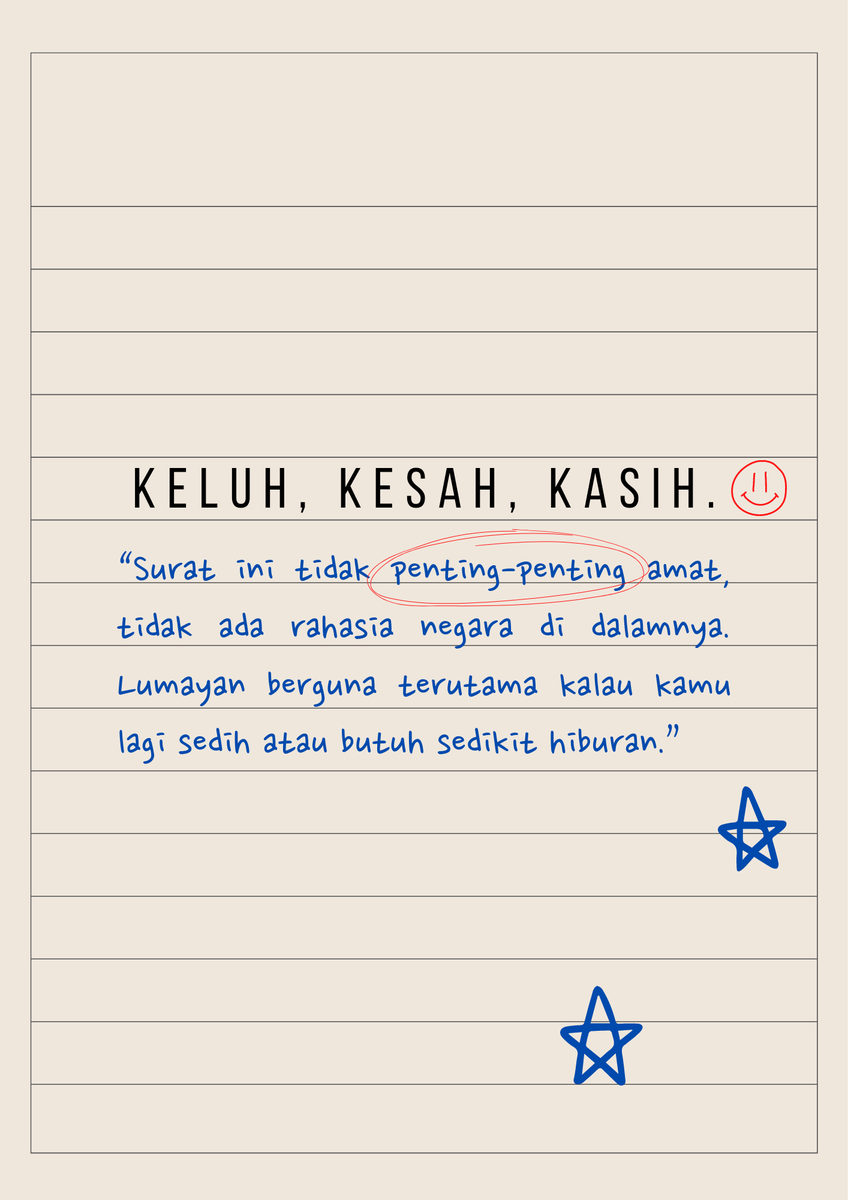 KELUH, KESAH, KASIH.
“Surat ini tidak penting-penting amat,
tidak ada rahasia negara di dalamnya.
Lumayan berguna terutama kalau kamu
lagi sedih atau butuh sedikit hiburan.”